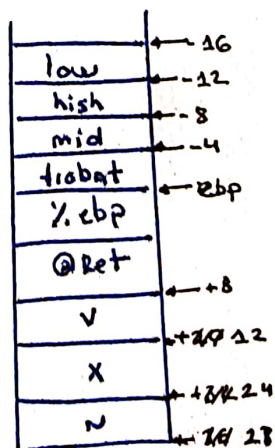 ← -16
low
← -12
high
← -8
mid
← -4
← ebp
%ebp
@Ret
← +8
V
← + 12
X
← + 24
N
← 28